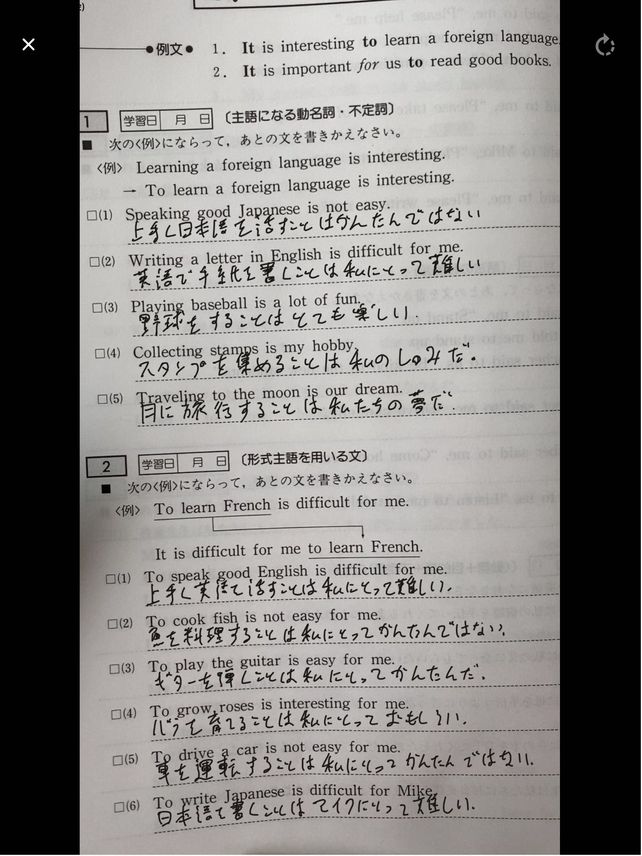 1. It is interesting to learn a foreign language.
●例文● 2. It is important for us to read good books.
1 学習日 月 日 〔主語になる動名詞・不定詞〕
■ 次の〈例〉にならって，あとの文を書きかえなさい。
〈例〉 Learning a foreign language is interesting.
→ To learn a foreign language is interesting.
□(1) Speaking good Japanese is not easy.
上手く日本語を話すことはかんたんではない
□(2) Writing a letter in English is difficult for me.
英語で手紙を書くことは私にとって難しい
□(3) Playing baseball is a lot of fun.
野球をすることはとても楽しい.
□(4) Collecting stamps is my hobby.
スタンプを集めることは私のしゅみだ。
□(5) Traveling to the moon is our dream.
月に旅行することは私たちの夢だ.
2 学習日 月 日 〔形式主語を用いる文〕
■ 次の〈例〉にならって，あとの文を書きかえなさい。
〈例〉 To learn French is difficult for me.
It is difficult for me to learn French.
□(1) To speak good English is difficult for me.
上手く英語で話すことは私にとって難しい.
□(2) To cook fish is not easy for me.
魚を料理することは私にとってかんたんではない.
□(3) To play the guitar is easy for me.
ギターを弾くことは私にとってかんたんだ.
□(4) To grow roses is interesting for me.
バラを育てることは私にとっておもしろい.
□(5) To drive a car is not easy for me.
車を運転することは私にとってかんたんではない.
□(6) To write Japanese is difficult for Mike.
日本語で書くことはマイクにとって難しい.